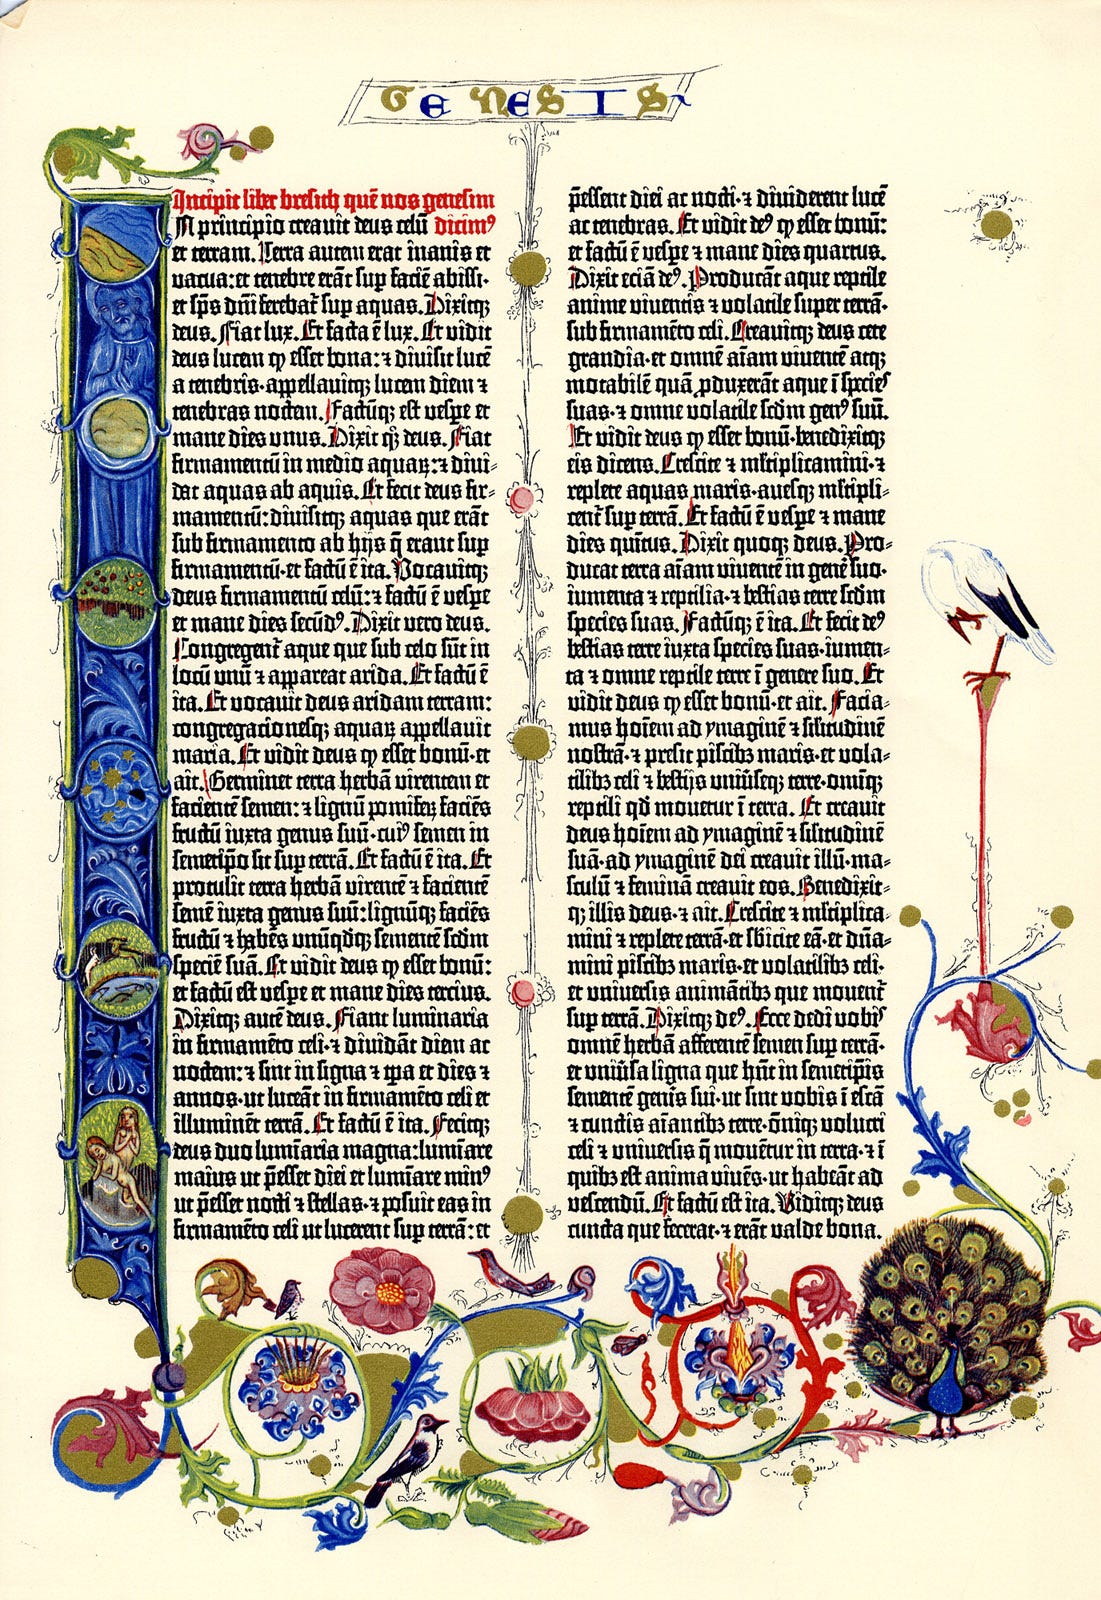 GENESIS
Incipit liber bresich quē nos genesim
N principio creauit deus celū dicim⁹
et terram. Terra autem erat inanis et
vacua: et tenebre erāt sup faciē abissi·
et sp̄s dn̄i ferebat̄ sup aquas. Dixitqꝫ
deus. Fiat lux. Et facta ē lux. Et vidit
deus lucem ꝙ esset bona: ⁊ diuisit lucē
a tenebris·appellauitqꝫ lucem diem ⁊
tenebras noctem. Factūqꝫ est vespe et
mane dies vnus. Dixit qꝫ deus. Fiat
firmamentū in medio aquaꝝ: ⁊ diui-
dat aquas ab aquis. Et fecit deus fir-
mamentū: diuisitqꝫ aquas que erāt
sub firmamento ab hijs q̄ erant sup
firmamentū·et factū ē ita. Vocauitqꝫ
deus firmamentū celū: ⁊ factū ē vespe
et mane dies secūd⁹. Dixit vero deus.
Congregent̄ aque que sub celo sūt in
locū vnū ⁊ appareat arida. Et factū ē
ita. Et vocauit deus aridam terram:
congregacionesqꝫ aquaꝝ appellauit
maria. Et vidit deus ꝙ esset bonū·et
ait. Germinet terra herbā virentem et
facientē semen: ⁊ lignū pomiferꝫ faciēs
fructū iuxta genus suū·cui⁹ semen in
semetip̄o sit sup terrā. Et factū ē ita. Et
protulit terra herbā virentē ⁊ facientē
semē iuxta genus suū: lignūqꝫ faciēs
fructū ⁊ habēs vnūqdqꝫ sementē scd̄m
speciē suā. Et vidit deus ꝙ esset bonū:
et factū est vespe et mane dies tercius.
Dixitqꝫ autē deus. Fiant luminaria
in firmamēto celi·⁊ diuidāt diem ac
noctem: ⁊ sint in signa ⁊ tp̄a et dies ⁊
annos·ut luceāt in firmamēto celi et
illuminēt terrā. Et factū ē ita. Fecitqꝫ
deus duo lumīaria magna: lumīare
maius ut p̄esset diei et lumīare min⁹
ut p̄esset nocti ⁊ stellas·⁊ posuit eas in
firmamēto celi ut lucerent sup terrā: et
p̄essent diei ac nocti·⁊ diuiderent lucē
ac tenebras. Et vidit de⁹ ꝙ esset bonū:
et factū ē vespe ⁊ mane dies quartus.
Dixit eciā de⁹. Producāt aque reptile
anime viuentis ⁊ volatile super terrā·
sub firmamēto celi. Creauitqꝫ deus cete
grandia·et omnē aīam viuentē atqꝫ
motabilē quā ꝓduxerāt aque ī species
suas·⁊ omne volatile scd̄m gen⁹ suū.
Et vidit deus ꝙ esset bonū·benedixitqꝫ
eis dicens. Crescite ⁊ ml̄tiplicamini·⁊
replete aquas maris·auesqꝫ ml̄tipli-
cent̄ sup terrā. Et factū ē vespe ⁊ mane
dies quītus. Dixit quoqꝫ deus. Pro-
ducat terra aīam viuentē in genē suo·
iumenta ⁊ reptilia·⁊ bestias terre scd̄m
species suas. Factūqꝫ ē ita. Et fecit de⁹
bestias terre iuxta species suas·iumen-
ta ⁊ omne reptile terre ī genere suo. Et
vidit deus ꝙ esset bonū·et ait. Facia-
mus hoīem ad ymaginē ⁊ sil̄itudinē
nostrā·⁊ presit piscibꝫ maris·et vola-
tilibꝫ celi ⁊ bestijs vniūseqꝫ terre·omīqꝫ
reptili qd̄ mouetur ī terra. Et creauit
deus hoīem ad ymaginē ⁊ sil̄itudinē
suā·ad ymaginē dei creauit illū·ma-
sculū ⁊ feminā creauit eos. Benedixit-
qꝫ illis deus·⁊ ait. Crescite ⁊ ml̄tiplica-
mini ⁊ replete terrā·et sb̄icite eā·et dn̄a-
mini piscibꝫ maris·et volatilibꝫ celi·
et vniuersis animātibꝫ que mouent̄
sup terrā. Dixitqꝫ de⁹. Ecce dedi vobis
omnē herbā afferentē semen sup terrā·
et vniūsa ligna que hn̄t in semetip̄is
sementē genīs sui·ut sint vobis ī escā
⁊ cunctis aīantibꝫ terre·ōniqꝫ volucri
celi ⁊ vniuersis q̄ mouētur in terra·⁊ ī
quibꝫ est anima viuēs·ut habeāt ad
vescendū. Et factū est ita. Viditqꝫ deus
cuncta que fecerat·⁊ erāt valde bona.